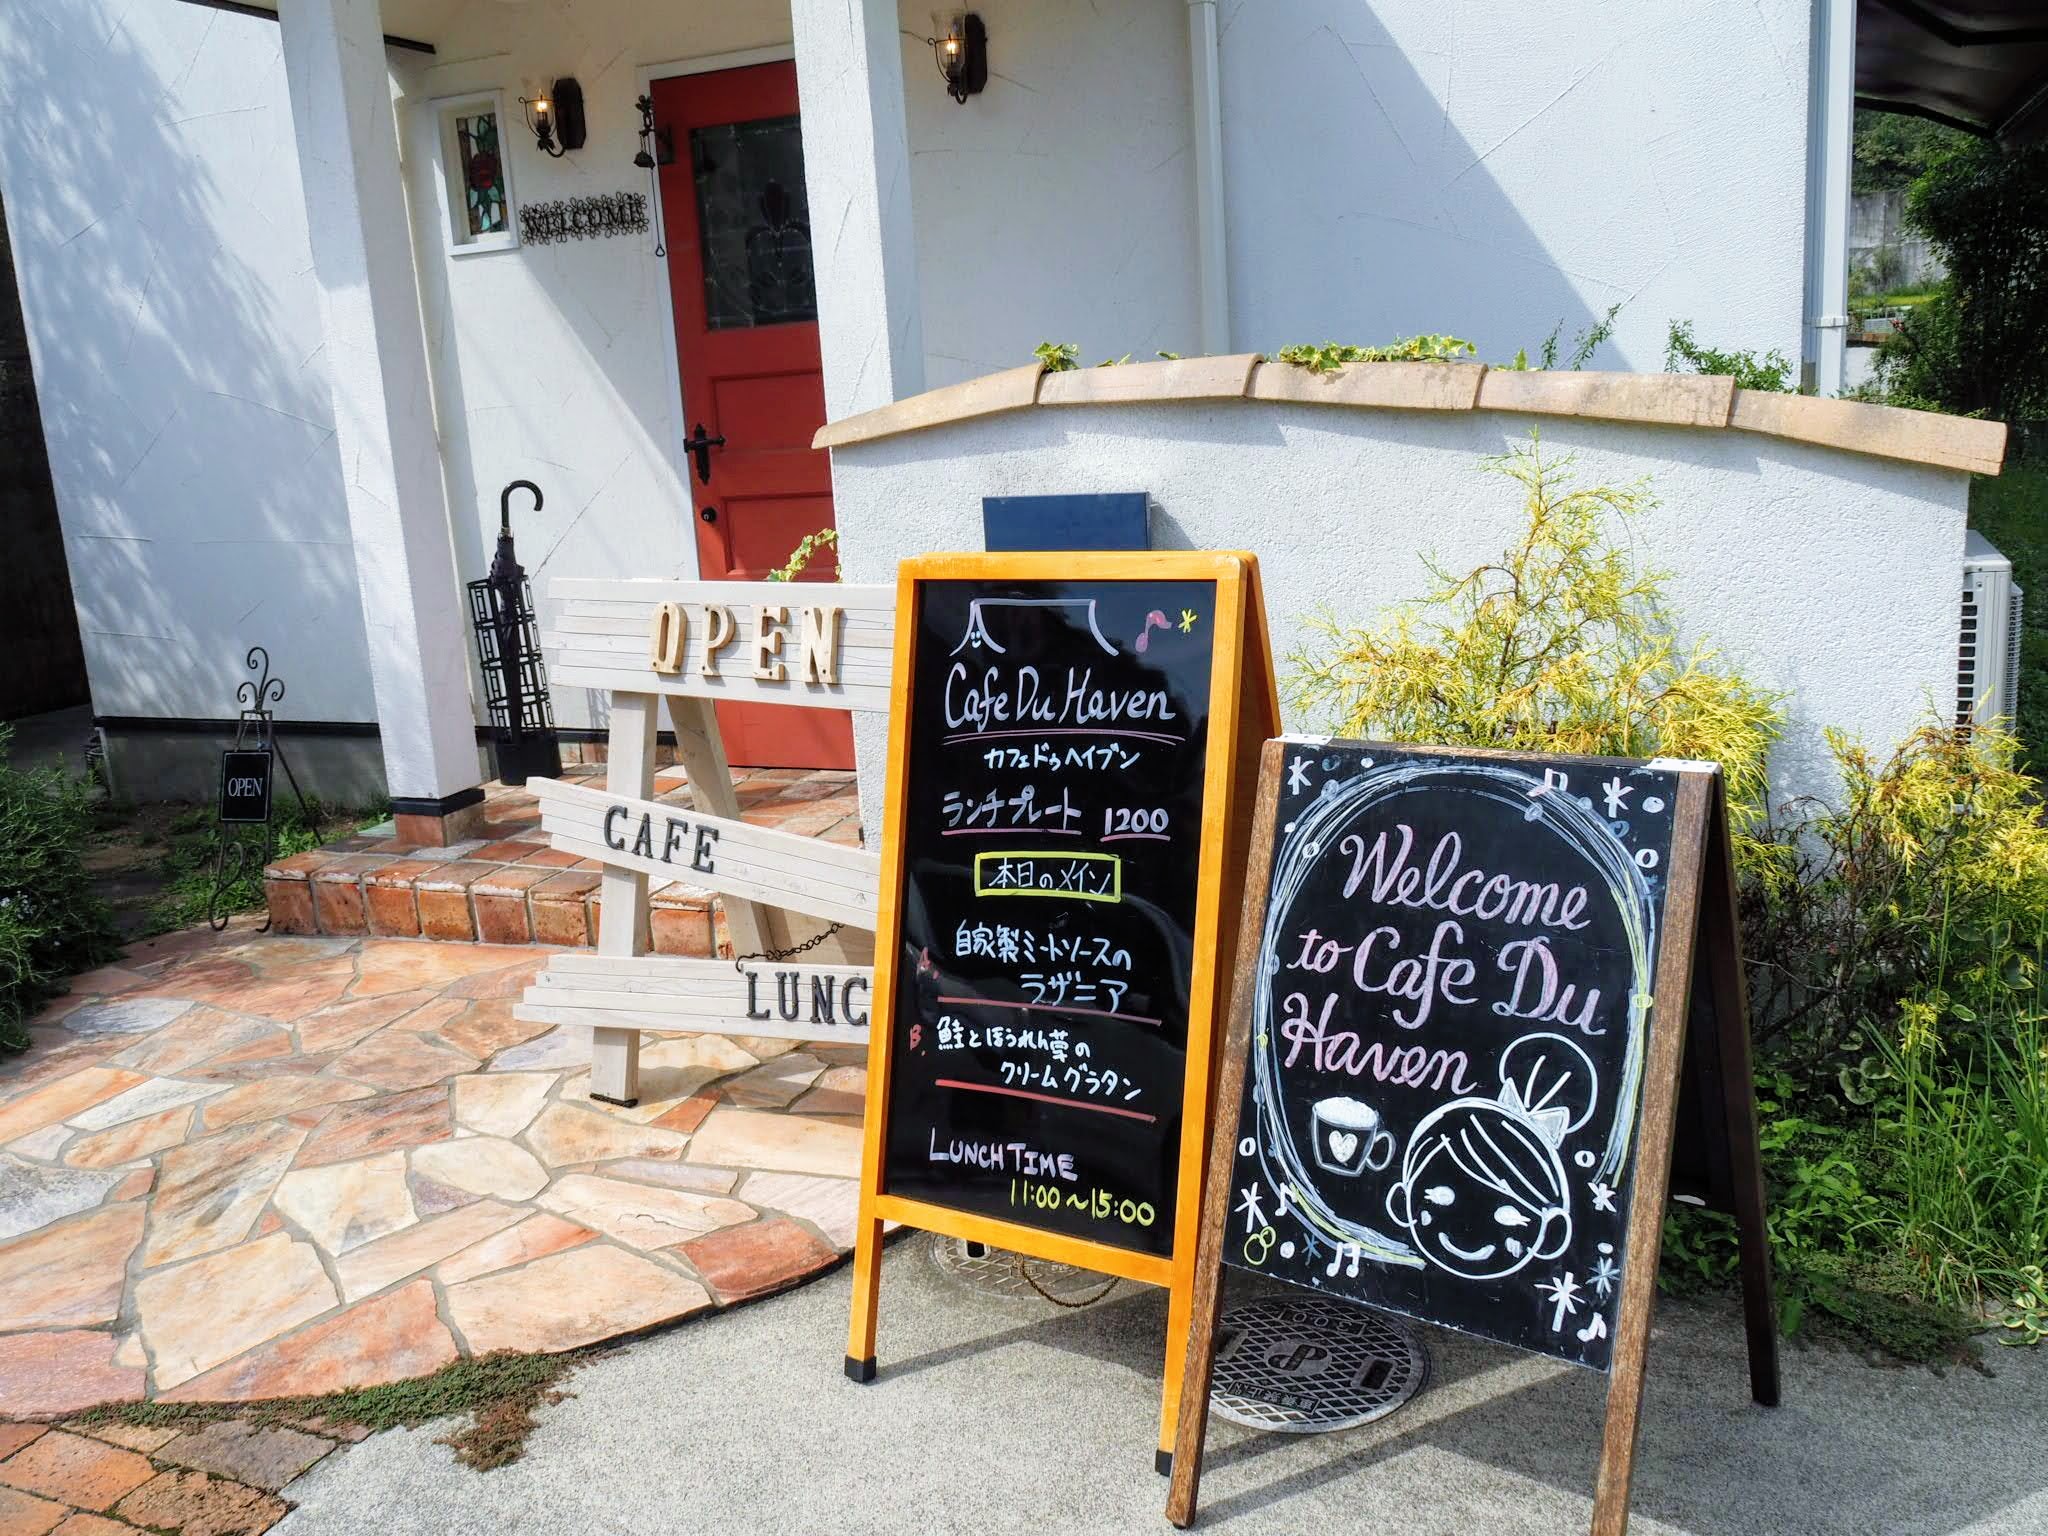 WELCOME
OPEN
CAFE
LUNC
OPEN
Cafe Du Haven
カフェドゥヘイブン
ランチプレート 1200
本日のメイン
A. 自家製ミートソースの
ラザニア
B. 鮭とほうれん草の
クリームグラタン
LUNCH TIME
11:00～15:00
Welcome
to Cafe Du
Haven